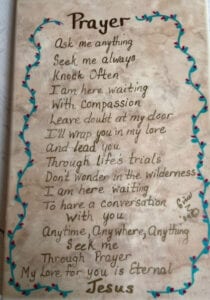 Prayer
Ask me anything
Seek me always
Knock Often
I am here waiting
With compassion
Leave doubt at my door
I'll wrap you in my love
And lead you
Through life's trials
Don't wonder in the wilderness
I am here waiting
To have a conversation
With you
Anytime, Anywhere, Anything
Seek me
Through Prayer
My Love for you is Eternal
Jesus